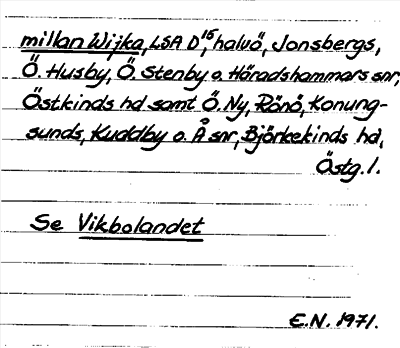 millan Wijka, LSA D15, halvö, Jonsbergs,
Ö. Husby, Ö. Stenby o. Häradshammars snr,
Östkinds hd samt Ö. Ny, Rönö, Konung-
sunds, Kuddby o. Å snr, Björkekinds hd,
Östg. l.
Se Vikbolandet
E.N. 1971.